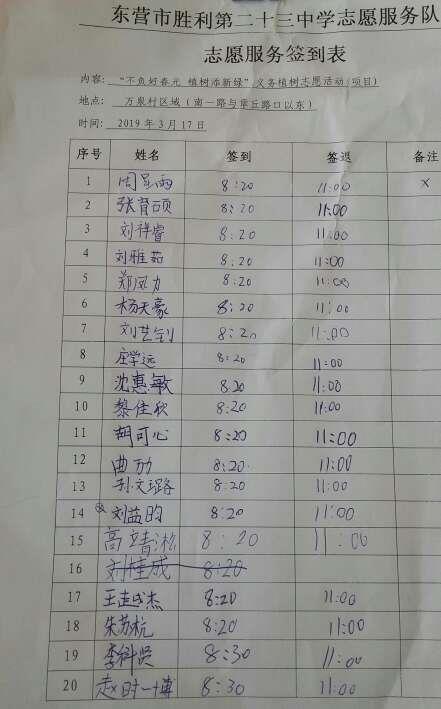 东营市胜利第二十三中学志愿服务队
志愿服务签到表
内容: "不负好春光 植树添新绿"义务植树志愿活动(项目)
地点: 万泉村区域(南一路与章丘路口以东)
时间: 2019年3月17日
序号 姓名 签到 签退 备注
1 周星雨 8:20 11:00 X
2 张育硕 8:20 11:00
3 刘祥睿 8:20 11:00
4 刘雅茹 8:20 11:00
5 郑凤力 8:20 11:00
6 杨天豪 8:20 11:00
7 刘艺钊 8:20 11:00
8 庄学远 8:20 11:00
9 沈惠敏 8:20 11:00
10 黎佳欣 8:20 11:00
11 胡可心 8:20 11:00
12 曲劢 8:20 11:00
13 孙文璐 8:20 11:00
14 刘益昀 8:20 11:00
15 高靖淞 8:20 11:00
16 刘桂成 8:20
17 王建杰 8:20 11:00
18 朱苏杭 8:20 11:00
19 李科贤 8:30 11:00
20 赵时一博 8:30 11:00